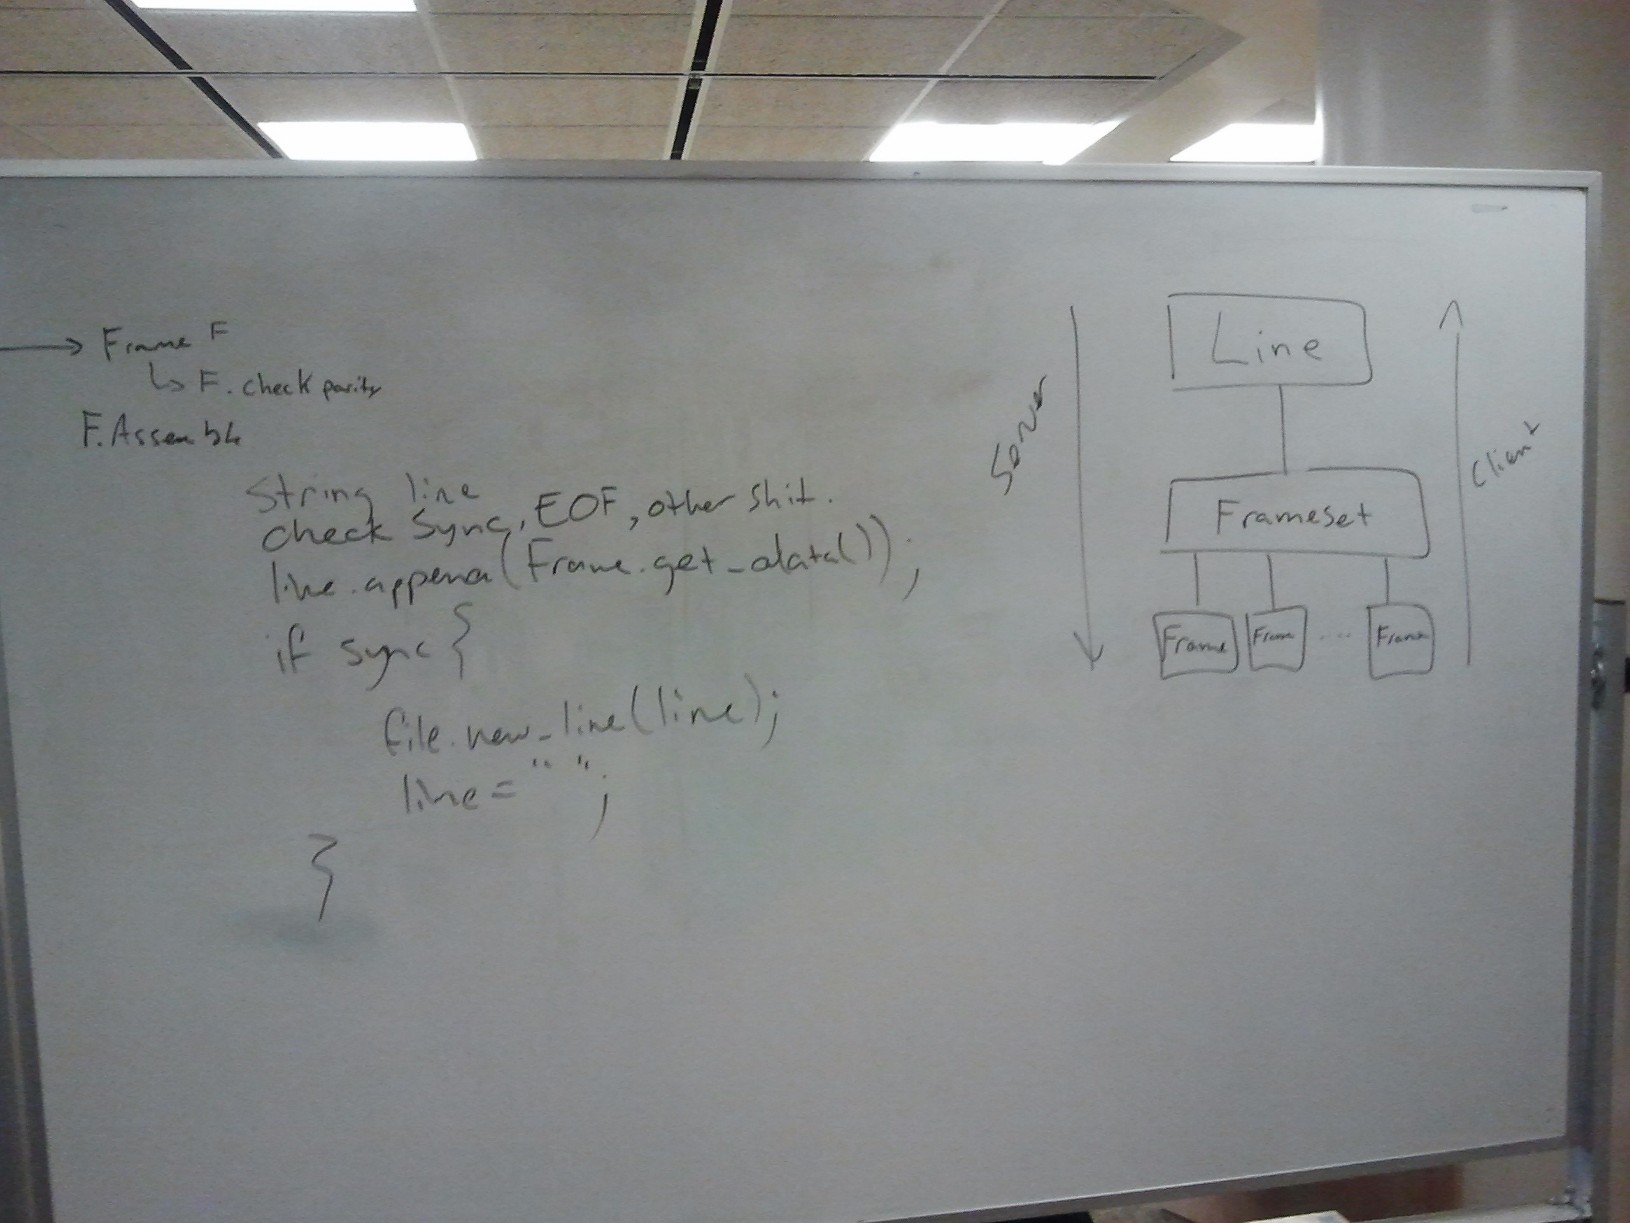 Frame F
F. check parity
F. Assemble
String line
check sync, EOF, other shit.
line.append(Frame.get_data());
if sync {
file.new_line(line);
line = " ";
}
Server
Line
Client
Frameset
Frame Frame .... Frame